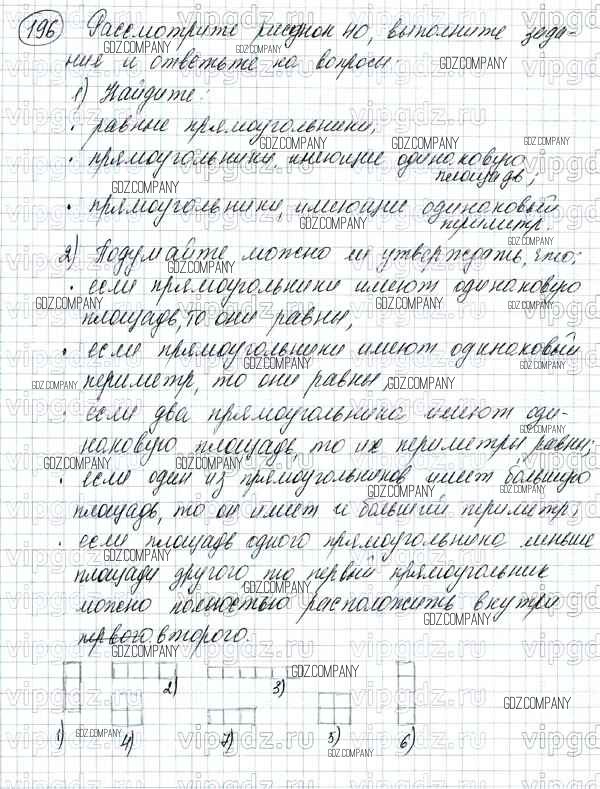 196 Рассмотрите рисунок 40, выполните зада-
ния и ответьте на вопросы.
1) Найдите:
• равные прямоугольники;
• прямоугольники, имеющие одинаковую
площадь;
• прямоугольники, имеющие одинаковый
периметр.
2) Подумайте можно ли утверждать, что:
• если прямоугольники имеют одинаковую
площадь, то они равны,
• если прямоугольники имеют одинаковый
периметр, то они равны,
• если два прямоугольника имеют оди-
наковую площадь, то их периметры равны;
• если один из прямоугольников имеет большую
площадь, то он имеет и больший периметр;
• если площадь одного прямоугольника меньше
площади другого то первый прямоугольник
можно полностью расположить внутри
первого второго.
1) 4) 2) 7) 3) 5) 6)
GDZ.COMPANY
vipgdz.ru